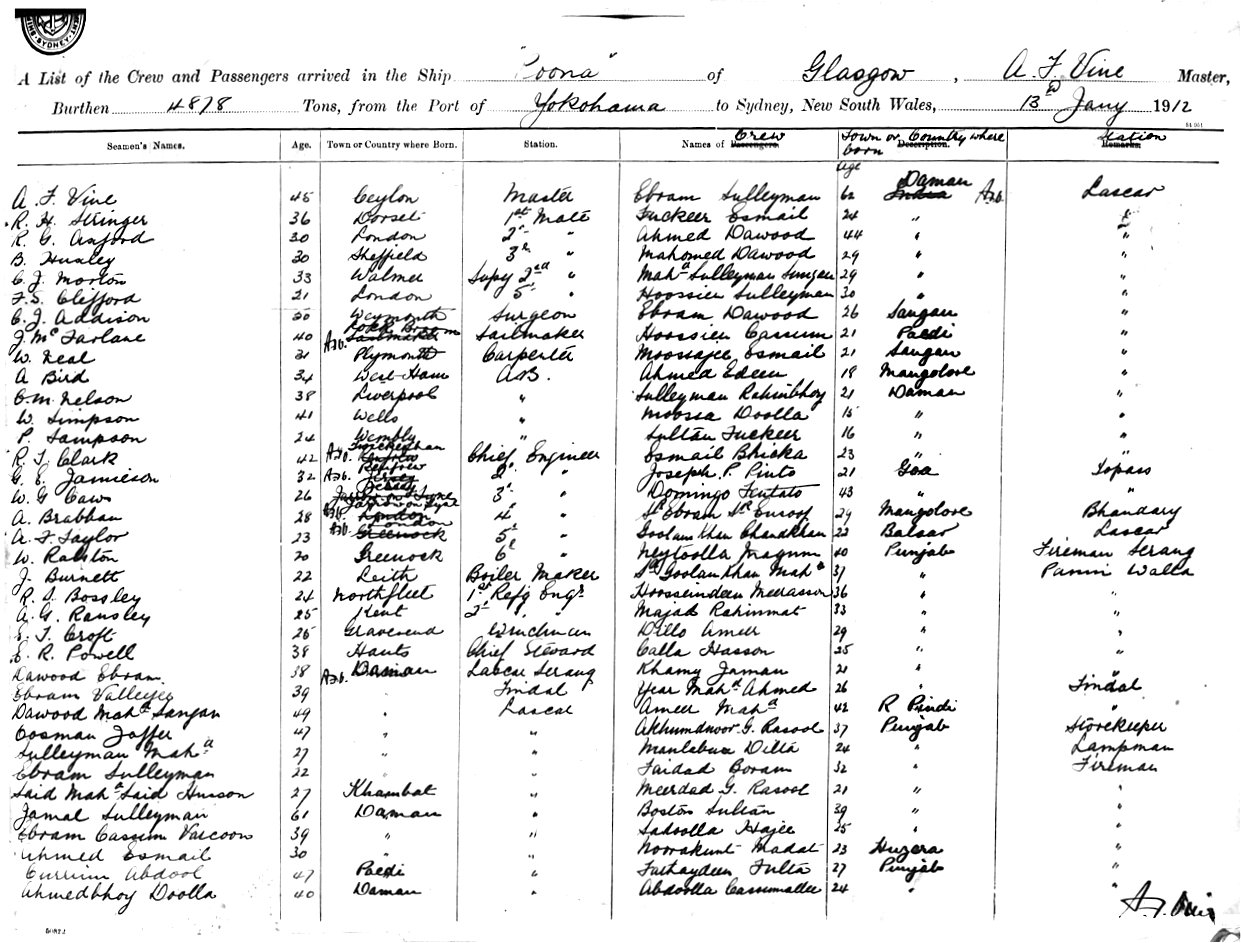 SYDNEY
A List of the Crew and Passengers arrived in the Ship "Poona" of Glasgow, A. F. Vine Master,
Burthen 4818 Tons, from the Port of Yokohama to Sydney, New South Wales, 13th Jany 1912
Seamen's Names. Age. Town or Country where Born. Station. Names of Passengers. Crew Description. Town or Country where born Remarks. Station
Age
A. F. Vine 45 Ceylon Master Ebram Sulleyman 62 India Daman Lascar
R. H. Stringer 36 Dorset 1st Mate Fuckeer Esmail 24 " "
R. G. Axford 30 London 2d " Ahmed Dawood 44 " "
B. Huxley 30 Sheffield 3d " Mahomed Dawood 29 " "
C. J. Morton 33 Walmer Supy 2nd " Mahd Sulleyman 29 " "
F. S. Clifford 21 London 5 " Hoossien Sulleyman 30 " "
C. J. Addison 30 Weymouth Surgeon Ebram Dawood 26 Sangan "
J. Mc Farlane 40 Sailmaker Hoossien Cassum 21 Paedi "
W. Neal 31 Plymouth Carpenter Moossajee Esmail 21 Sangan "
A Bird 34 West Ham A.B. Ahmed Edeen 18 Mangolore "
C. M. Nelson 38 Liverpool " Sulleyman Rahimbhoy 21 Daman "
W. Simpson 41 Wells " Moossa Doolla 15 " "
P. Sampson 24 Wembly " Sultan Fuckeer 16 " "
R. T. Clark 42 Chief Engineer Esmail Bhicka 23 " "
G. E. Jamieson 32 Renfrew 2d " Joseph. P. Pinto 21 Goa Topass
W. G Caws 26 3d " Domingo 43 " "
A. Brabban 28 Jarrow on Tyne 4 " Sd Ebram Sd Eusoof 29 Mangolore Bhandary
A. F. Taylor 23 London 5 " Goolam Khan Chandkhan 22 Balsar Lascar
W. Ralston 20 Greenock 6 " Neytoolla Magum 40 Punjab Fireman Serang
J. Burnett 22 Leith Boiler Maker Sd Goolam Khan Mahd 31 " Panni Walla
R. S. Bossley 24 Northfleet 1st Refg Engr. Hoosseindeen Meerasson 36 " "
A. G. Ransley 25 Kent 2d " " Majad Rahinmat 33 " "
E. T. Croft 25 Gravesend Winchman Dillo Ameer 29 " "
E. R. Powell 38 Hants Chief Steward Calla Hasson 25 " "
Dawood Ebram 38 Daman Lascar Serang Khamy Jaman 21 " "
Ebram Valleyjee 39 " Tindal Year Mahd Ahmed 26 " Tindal
Dawood Mahd Sangan 49 " Lascar Ameer Mahd 42 R Pindi "
Oosman Jaffer 47 " " Akhumdnoor G. Rasool 37 Punjab Storekeeper
Sulleyman Mahd 27 " " Ditta 24 " Lampman
Ebram Sulleyman 22 " " Faidad Boram 32 " Fireman
Said Mahd Said Husson 27 Khambat " Meerdad G. Rasool 21 " "
Jamal Sulleyman 61 Daman " Boston Sultan 39 " "
Ebram Cassum Varcoon 39 " " Sadoolla Hajee 25 " "
Ahmed Esmail 30 " " Noorakunt Madat 23 Huzera "
Currim Abdool 47 Paedi " Futhaydeen Futta 27 Punjab "
Ahmedbhoy Doolla 40 Daman " Abdoolla Cassumallee 24 " "
A. F. Vine